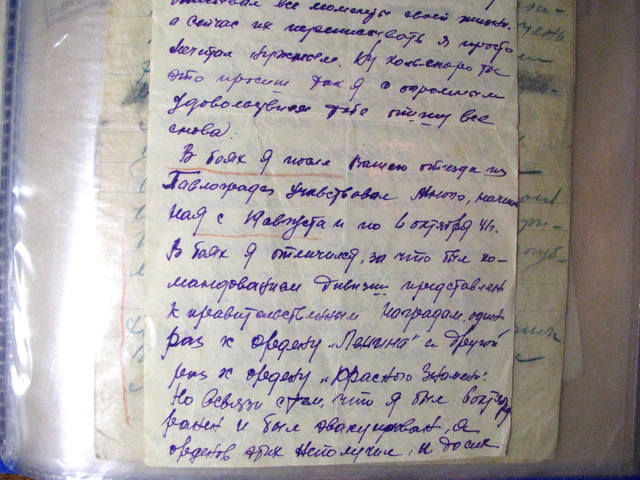 все моменты своей жизни.
а сейчас их переписывать я просто
считал нужным. Ну коль скоро ты
это просиш так я с огромным
удовольствием тебе опишу все
снова.
В боях я после Вашего отъезда из
Павлограда учавствовал много, начи
ная с 19 августа и по 6 октября 41г.
В боях я отличился, за что был ко-
мандованием дивизии представлен
к правительственным наградам, один
раз к ордену „Ленина" и другой
раз к ордену „Красного Знамени".
Но всвязи стем, что я был в октябре
ранен и был эвакуирован, я
орденов этих неполучил, и до сих